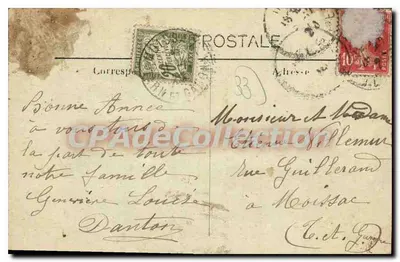 POSTALE
Corresp
Adresse
33
Bonne Année
à vous tous de
la part de toute
notre famille
Geneviève Louise
Danton
Monsieur et Madame
rue Guilleraud
à Moissac
T. et Garonne
CPA Collection
10